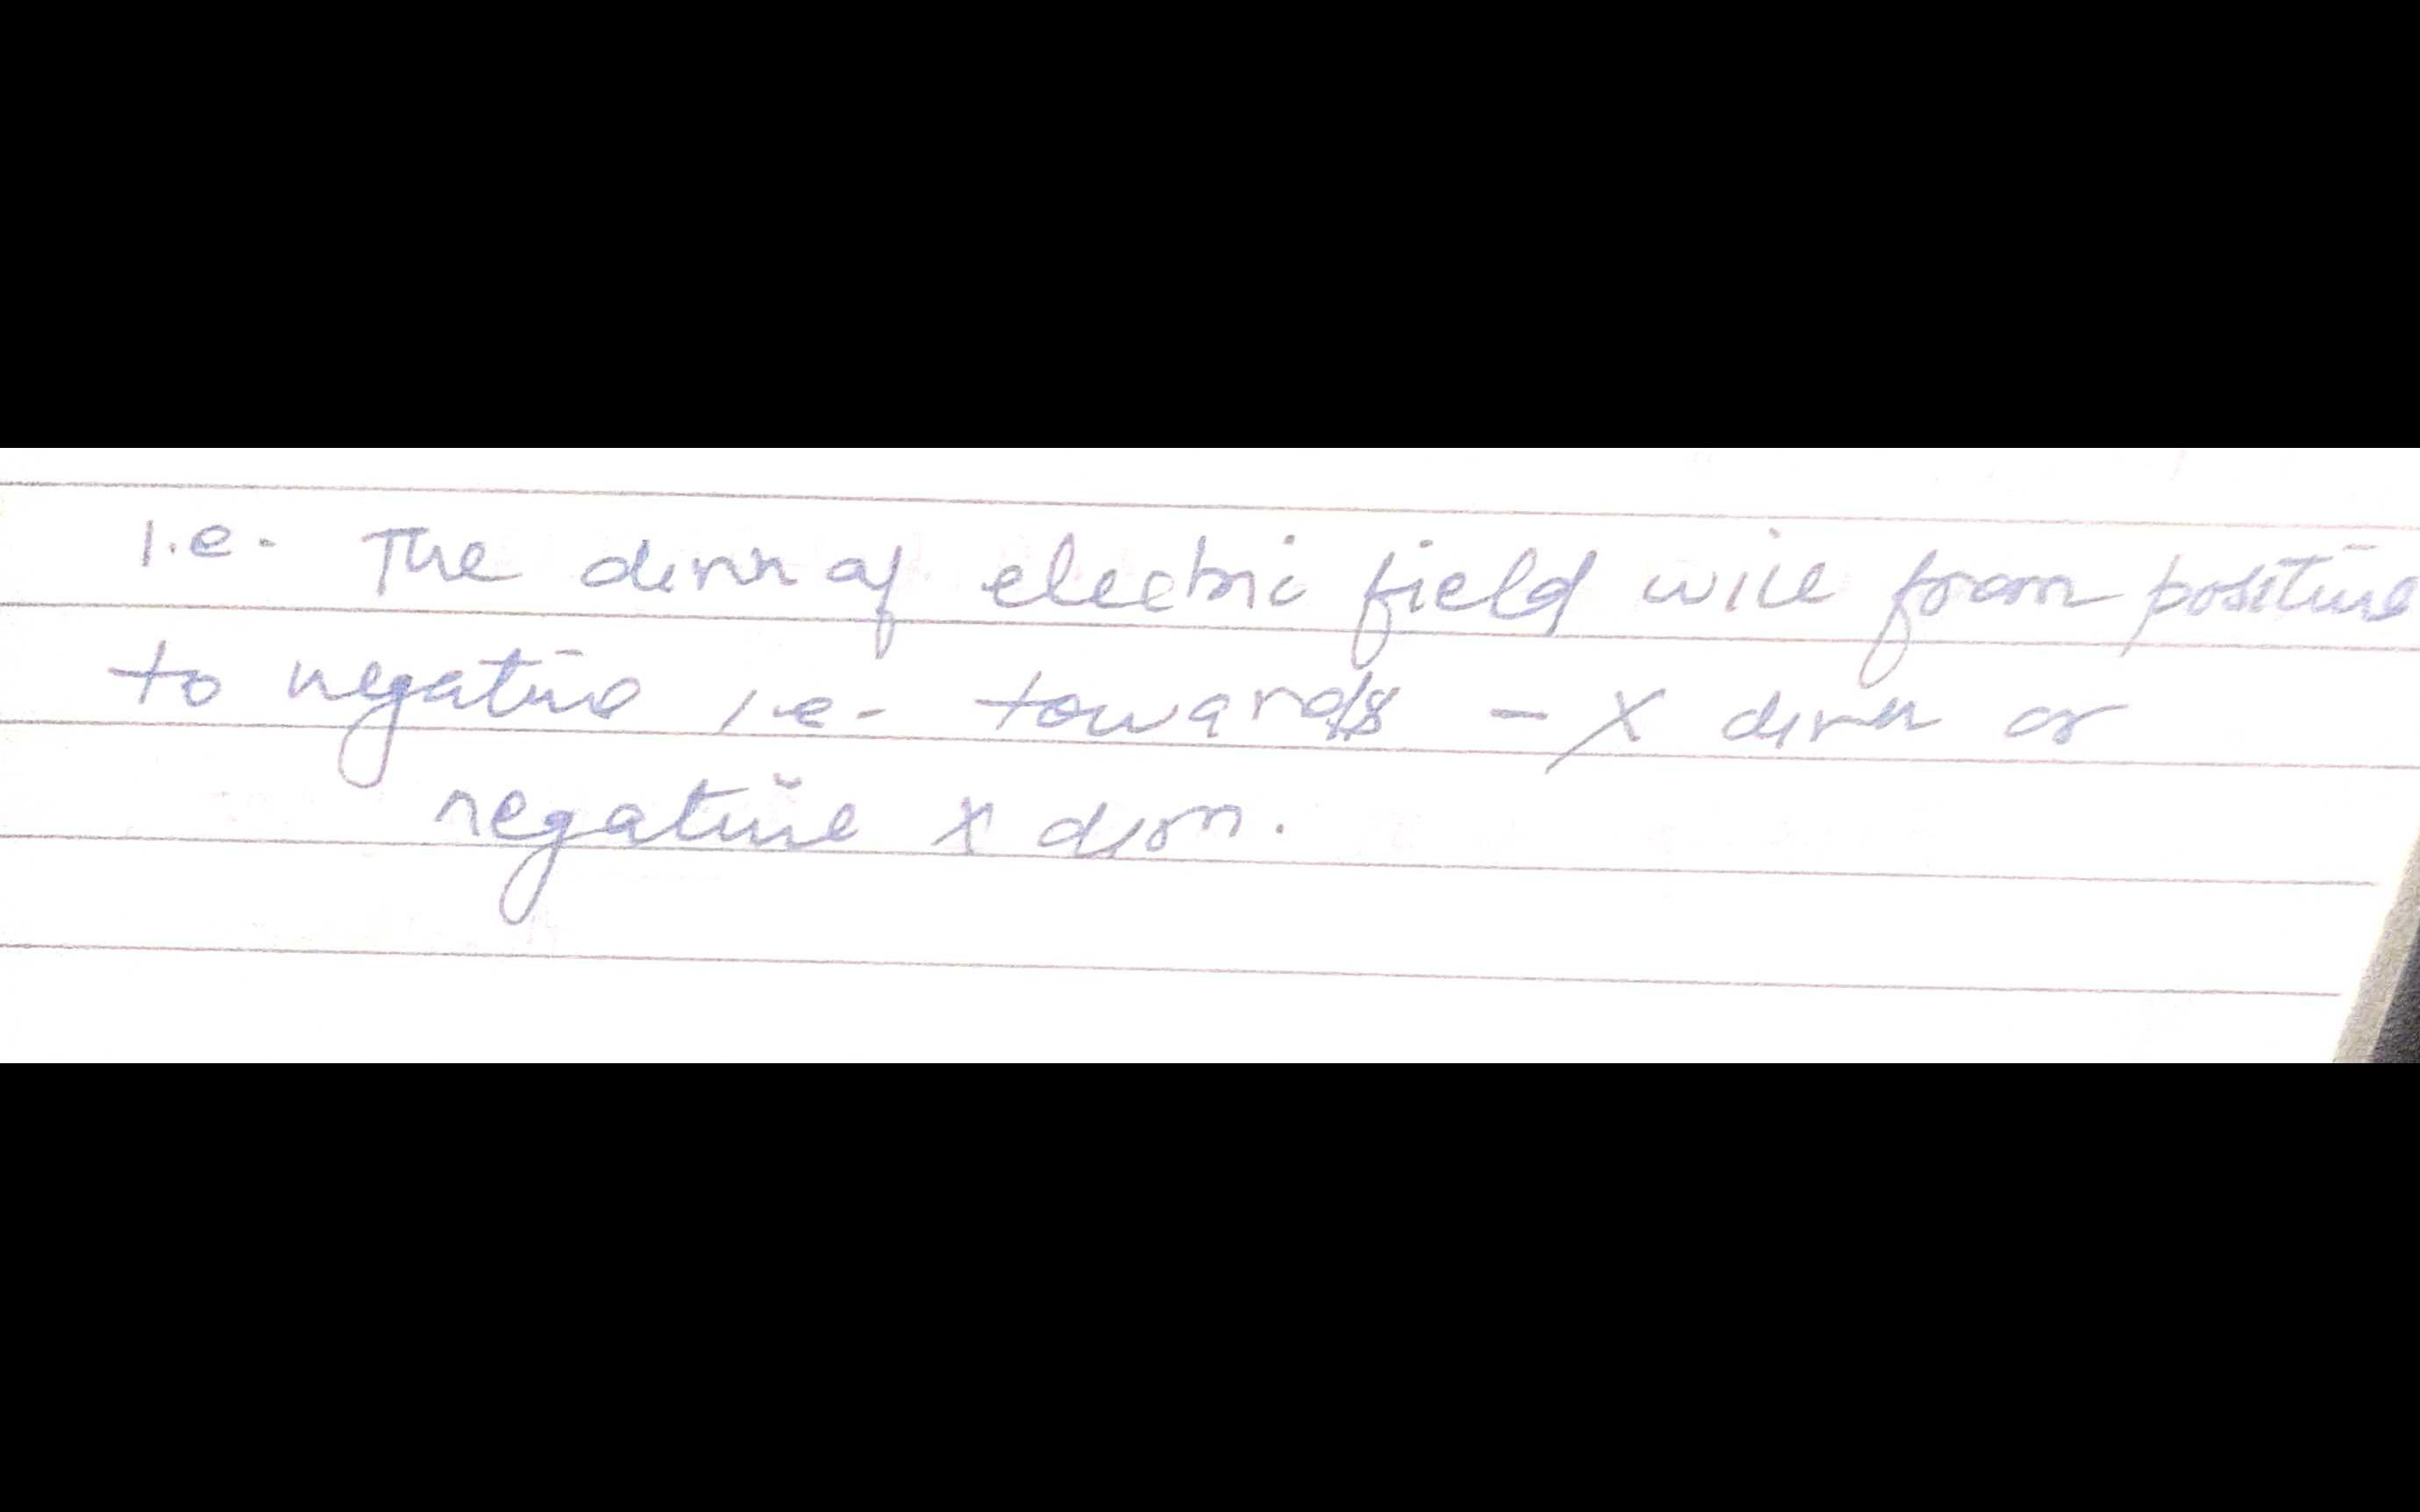 i.e. The dirn of electric field will from positive
to negative i.e. towards - X dirn or
negative x dirn.